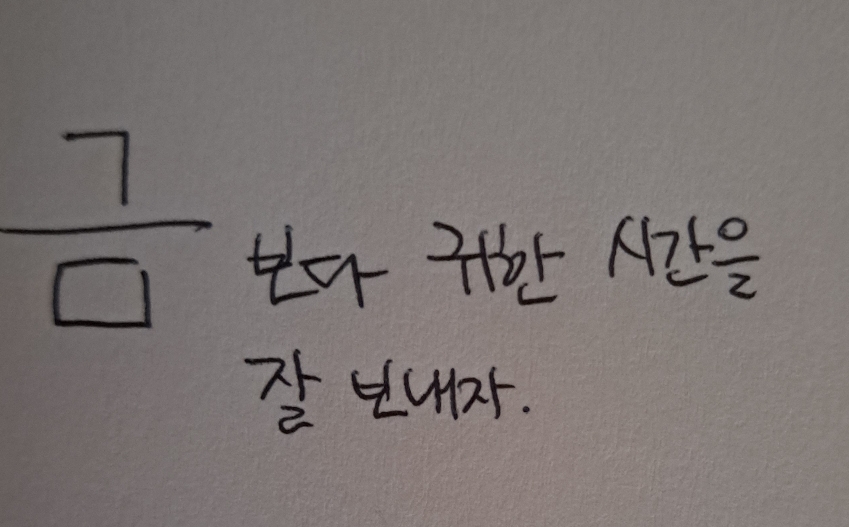 금보다 귀한 시간을
잘 보내자.